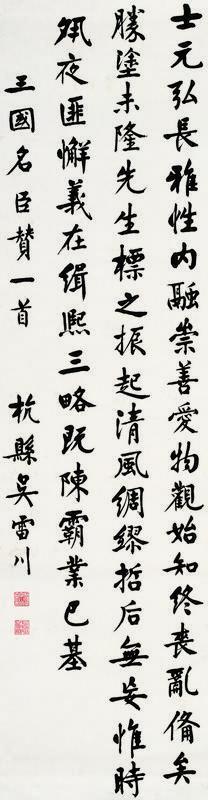 士元弘長雅性內融崇善愛物觀始知終喪亂俻矣
勝塗未隆先生標之振起清風綢繆哲后無妄惟時
夙夜匪懈義在緝熙三略既陳霸業已基
三國名臣贊一首 杭縣吳雷川